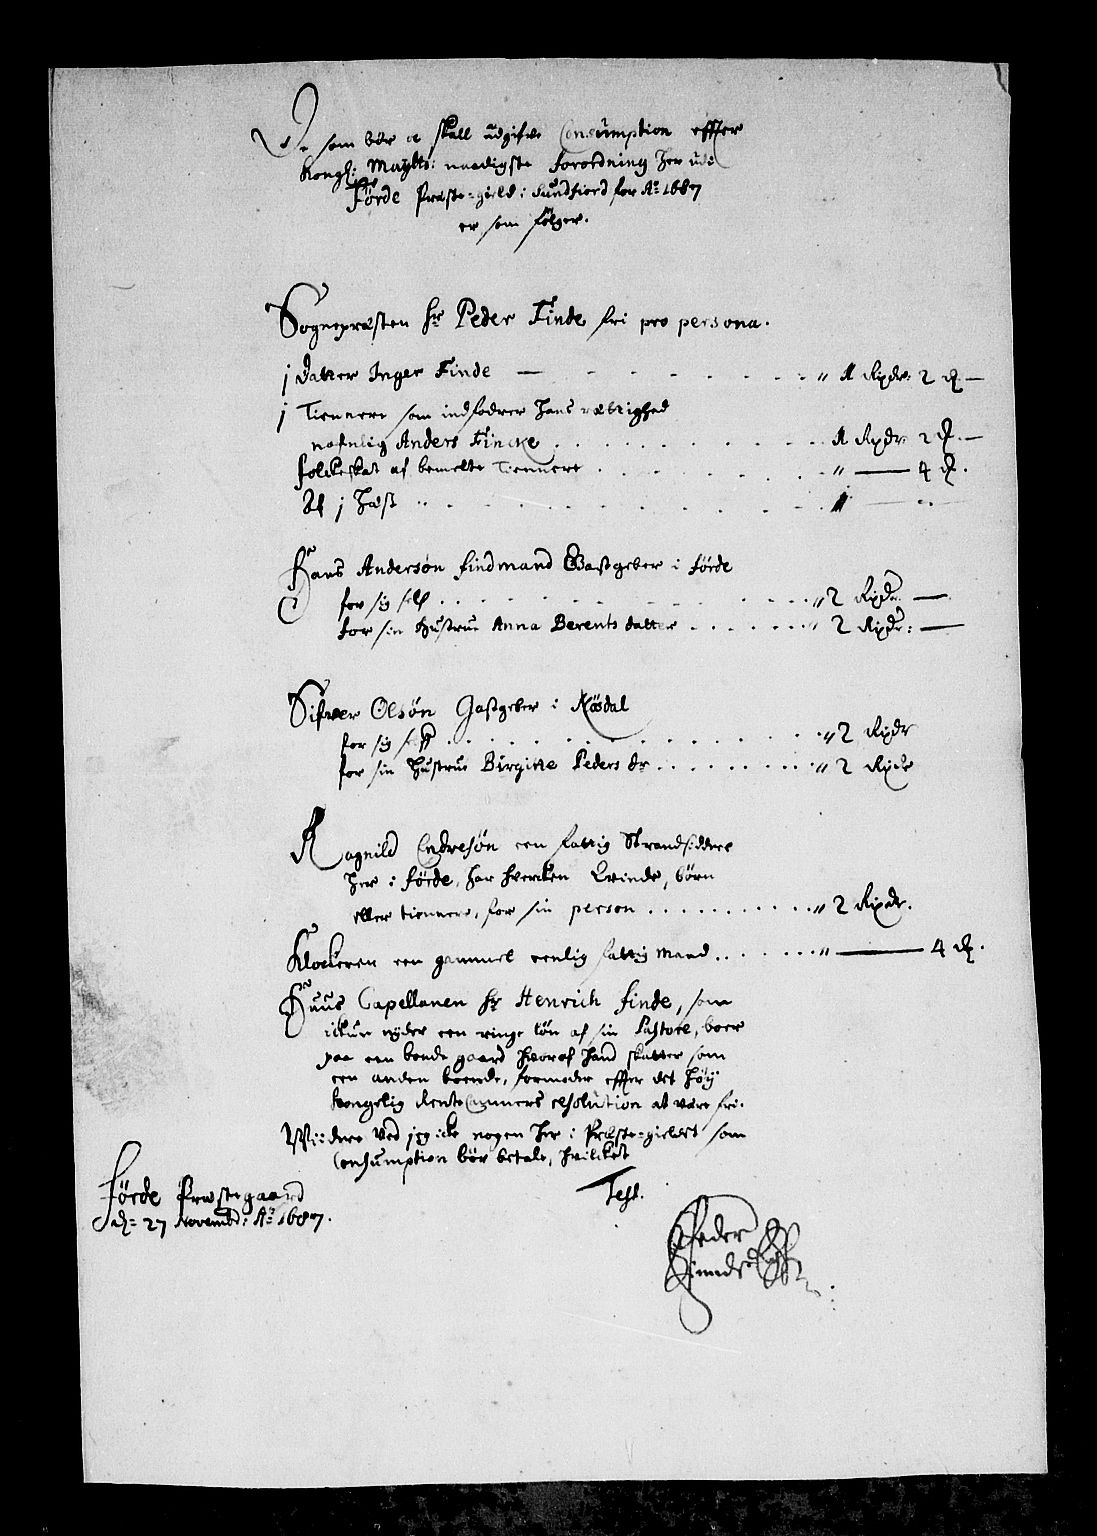 De som bør oc skall udgifve Consumption effter
Kongl: Maÿtts: naadigste forordning her udi
Førde Præste-gield i Sundfiord for Ao 1687
er som følger.
Sognepræsten hr Peder Finde fri pro persona.
j Datter Inger Finde — - - - - - - - " 1 Rixdr: 2 ℔ —
j Tiennere som indfodrer hans rættighed
nafnlig Anders Fincke . . . . . . . . . 1 Rixdr 2 ℔. —
folckeskat af bemelte Tiennere . . . . . . " — 4 ℔.
Af j Hæst " . . . . . . . . . . . . —
Hans Andersøn findmand Gastgeber i førde
for sig self . . . . . . . . . . . . " 2 Rixdr. —
for sin Hustrue Anna Berents datter . . . . . . " 2 Rixdr: —
Sifver Olsøn Gastgeber i Nøsdal
for sig self . . . . . . . . . . . . . " 2 Rixdr
for sin Hustrue Birgitte Peders dr . . . . . . . " 2 Rixdr
Ragnild Endresøn een fattig Strandsiddere
her i førde, har hvercken Qvinde, børn
eller tiennere, for sin person . . . . . . . . . " 2 Rixdr.
Klockeren een gammel eenlig fattig Mand . . . . . . " — 4 ℔.
Huus Capellanen hr Henrich finde, som
ickun nyder een ringe løn af sin Pastore, boer
paa een bonde gaard hvoraf hand skatter som
een anden boende, formoder effter det høÿ
kongelig Rente Cammers resolution at være fri.
Wiidere ved jeg icke nogen her i Præste-gieldet som
Consumption bør betale, hvilcket
Test.
Førde Præstegaard
d: 27 Novembr: Ao 1687.
Peder
Finde